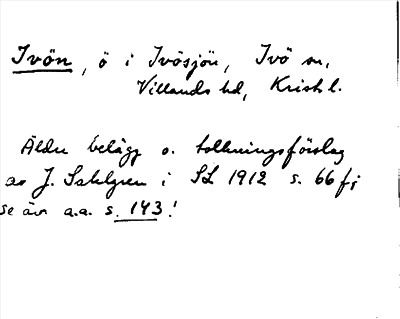 Ivön, ö i Ivösjön, Ivö sn,
Villands hd, Krist l.
Äldre belägg o. tolkningsförslag
av J. Sahlgren i SL 1912 s. 66 f;
se äv a.a. s. 143!